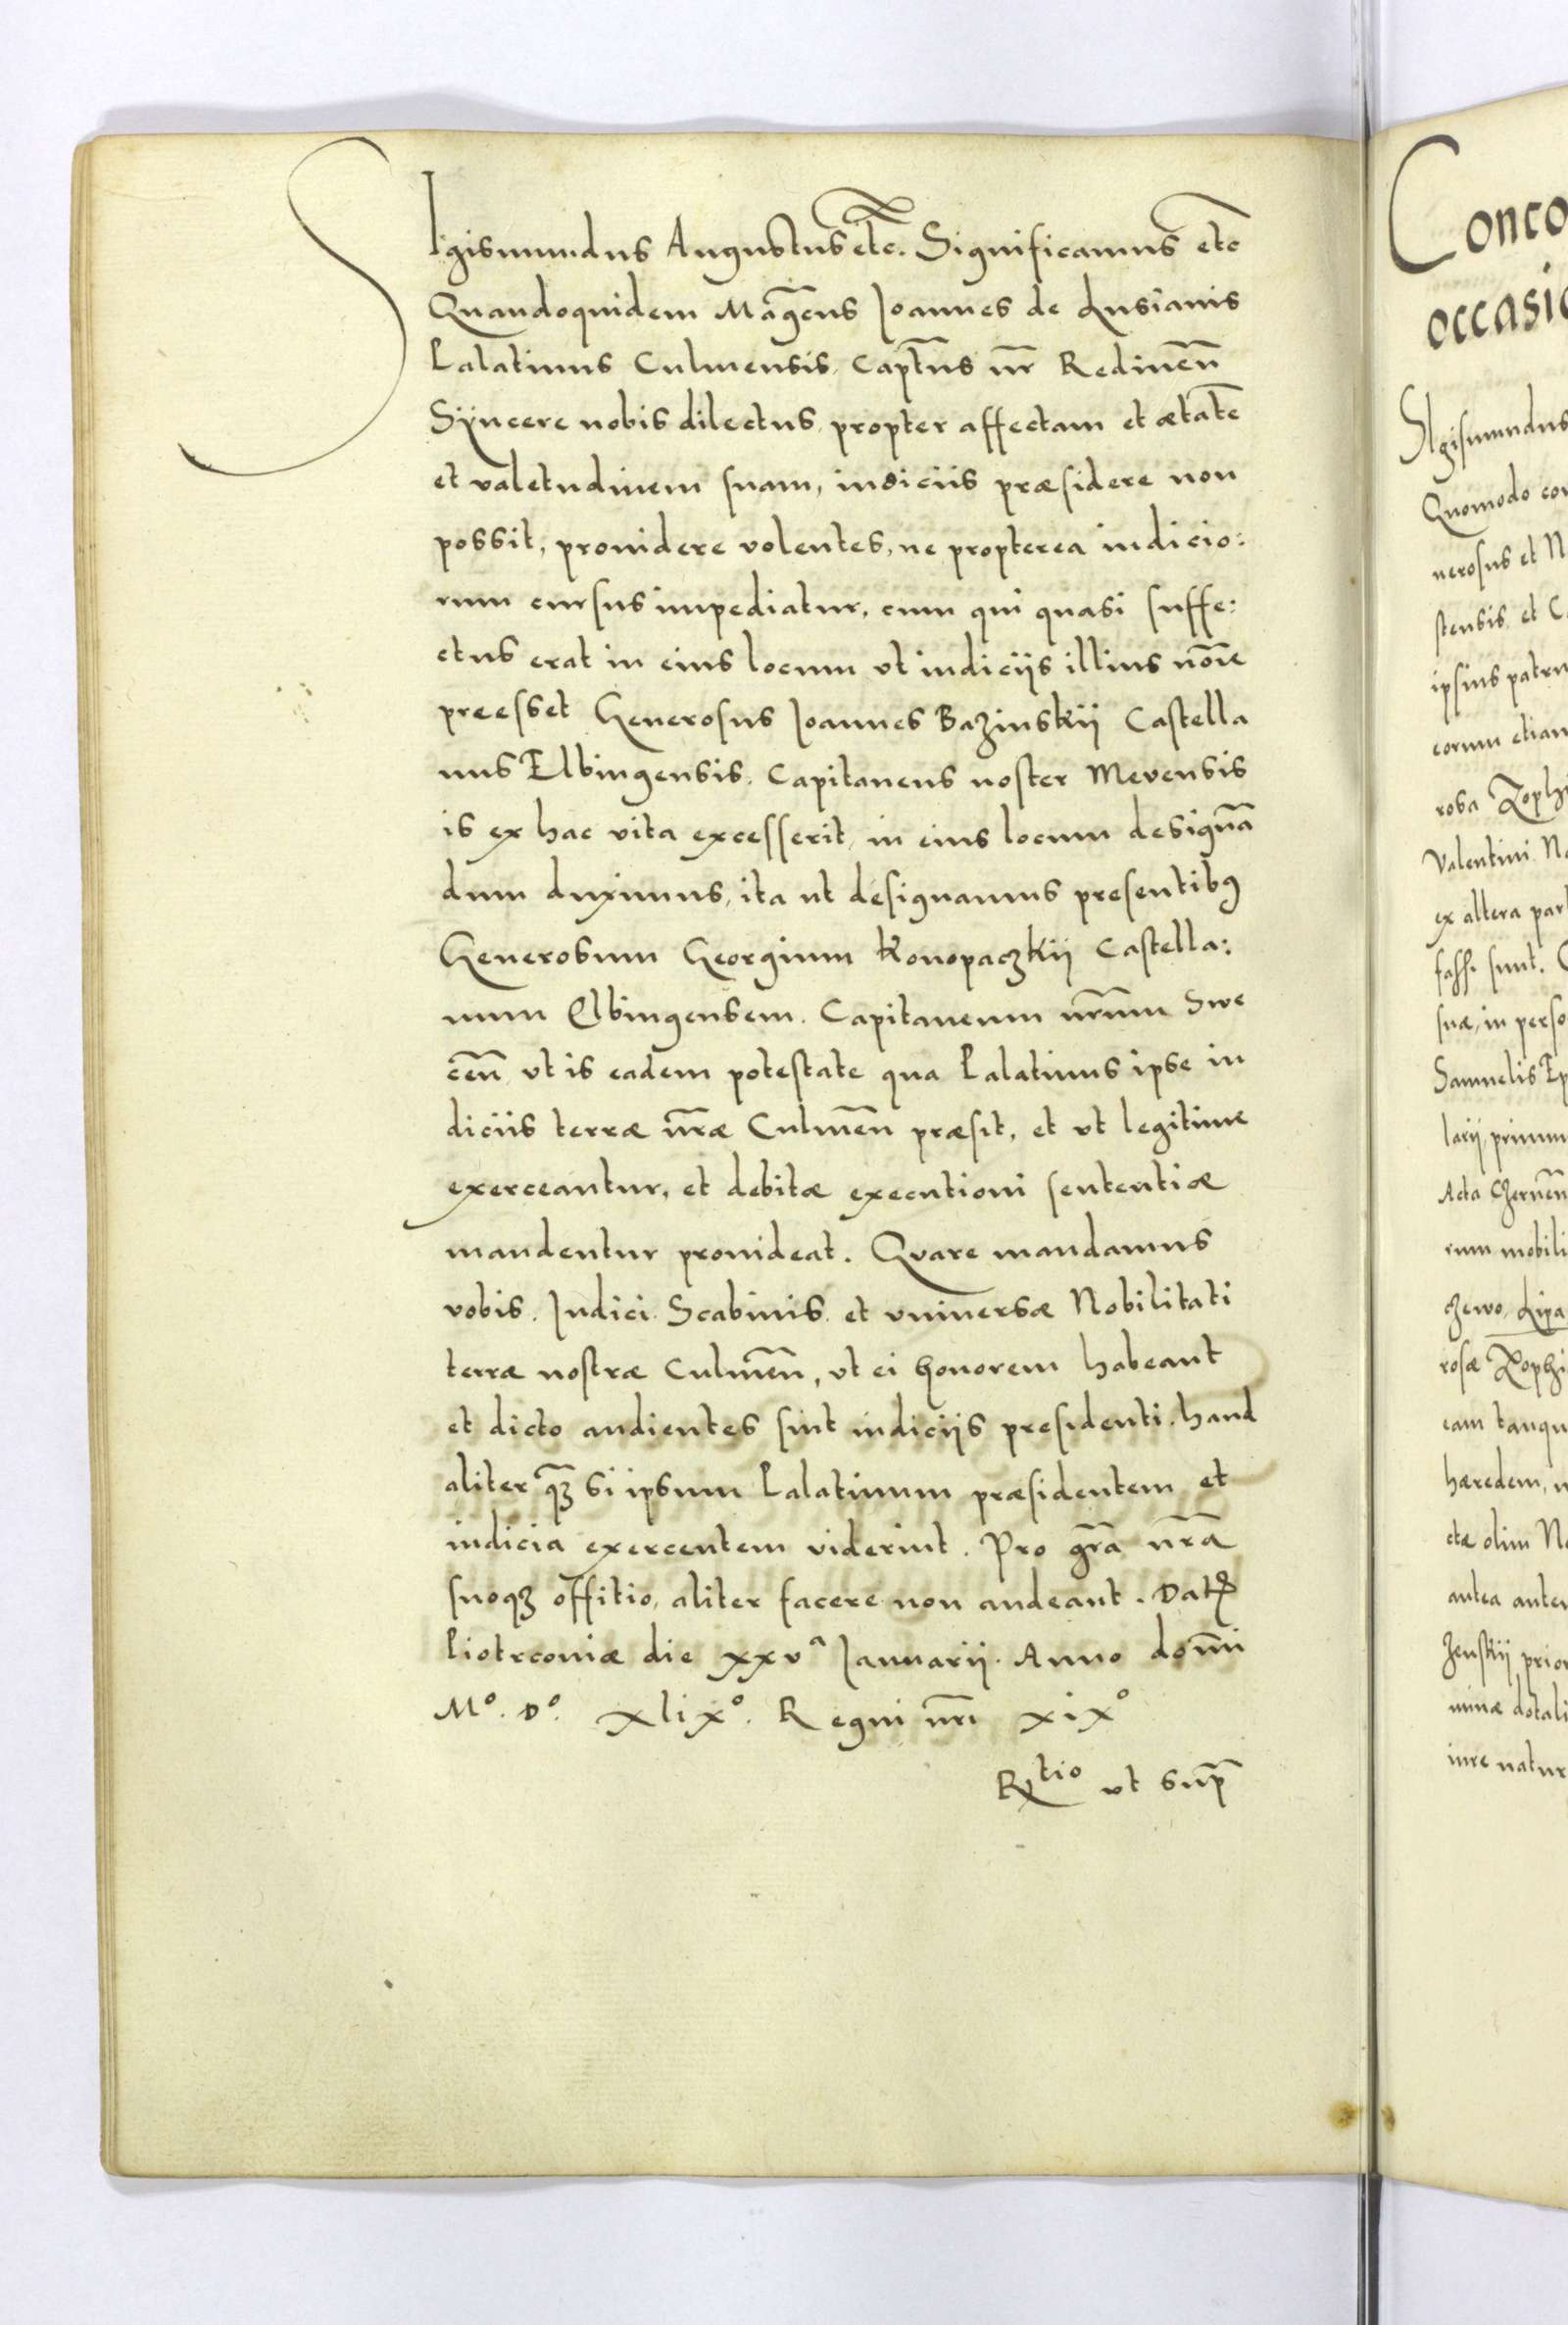 SIgismundus Augustus etc. Significamus etc
Quandoquidem Mağcus Ioannes de Lusianis
Palatinus Culmensis, Capt̃us nr̃ Redineñ
Sÿncere nobis dilectus, propter affectam et ætatẽ
et valetudinem suam, iudiciis præsidere non
possit, prouidere volentes, ne propterea iudicio:
rum cursus impediatur, cum qui quasi suffe:
ctus erat in eius locum vt iudiciis illius noĩe
preesset Generosus Ioannes Bazinskÿ Castella
nus Elbingensis. Capitaneus noster Mevensis
is ex hac vita excesserit, in eius locum designã
dum duximus, ita ut designamus presentibꝰ
Generosum Georgium Konopaczkÿ Castella:
num Elbingensem. Capitaneum nr̃um Swe
ceñ vt is eadem potestate qua Palatinus ipse iu
diciis terræ nr̃æ Culmeñ præsit, et vt legitime
exerceantur, et debitæ executioni sententiæ
mandentur prouideat. Quare mandamus
vobis. Iudici. Scabinis. et vniversæ Nobilitati
terræ nostræ Culmeñ, vt ei honorem habeant
et dicto audientes sint iudiciis presidenti. haud
aliter q̃ꝫ si ipsum Palatinum præsidentem et
iudicia exercentem viderint. Pro gr̃a nr̃a
suoqꝫ offitio, aliter facere non audeant. Datꝭ
Piotrcoviæ die xxvᵃ Ianuarii. Anno domĩ
Mº. Dº. xlixº. Regni nr̃i xixº
R^tio vt sup̃
Conco
occasio
SIgismundus
Quomodo co
nerosus et N
stensis, et C
ipsius patru
eorum etiam
rosa Zophi
Valentini N
ex altera par
fassi sunt.
suæ, in perso
Samuelis Ep
larii, primum
Acta Czerneñ
rum mobili
czewo, Lipa
rosæ Zophi
eam tanqu
hæredem,
ctæ olim N
antea autem
zenskÿ prior
minæ dotali
iure natur